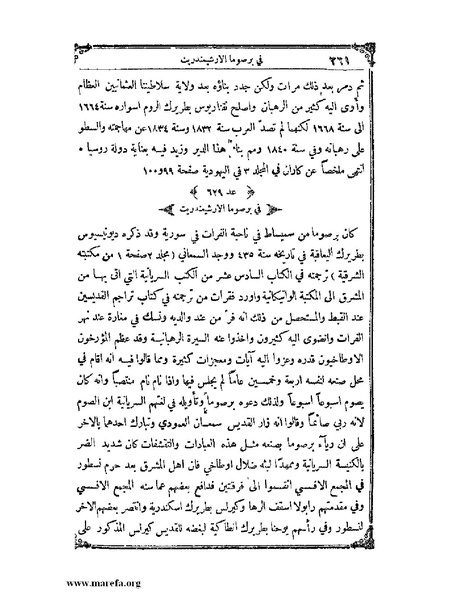 ٣٦١ في برصوما الارشيمندريت
ثم دمر بعد ذلك مرات ولكن جدد بناؤه بعد ولاية سلاطيننا العثمانيين العظام
وأوى اليه كثير من الرهبان واصلح نقتاريوس بطريرك الروم اسواره سنة ١٦٦٤
الى سنة ١٦٦٨ لكنهما لم تصدّ العرب سنة ١٨٣٢ وسنة ١٨٣٤ عن مهاجمته والسطو
على رهبانه وفي سنة ١٨٤٠ رمم بناء هذا الدير وزيد فيه بعناية دولة روسيا ٠
انتهى ملخصاً عن كاران في المجلد ٣ في اليهودية صفحة ٩٩ و١٠٠
﴿ عد ٦٢٩ ﴾
﴿ في برصوما الارشيمندريت ﴾
كان برصوما من سميساط في ناحية الفرات في سورية وقد ذكره ديونيسيوس
بطريرك اليعاقبة في تاريخه سنة ٤٣٥ ووجد السمعاني ( مجلد ٢ صفحة ١ من مكتبته
الشرقية ) ترجمته في الكتاب السادس عشر من الكتب السريانية التي اتى بها من
المشرق الى المكتبة الواتيكانية واورد فقرات من ترجمته في كتاب تراجم القديسين
عند القبط والمتحصل من ذلك انه فرّ من عند والديه ونسك في منارة عند نهر
الفرات وانضوى اليه كثيرون واخذوا عنه السيرة الرهبانية وقد عظم المؤرخون
الاوطاخيون قدره وعزوا اليه آيات ومعجزات كثيرة ومما قالوا فيه انه اقام في
محل صنعه لنفسه اربعة وخمسين عاماً لم يجلس فيها واذا نام نام منتصباً وانه كان
يصوم اسبوعاً اسبوعاً ولذلك دعوه برصوما وتأويله في لغتهم السريانية ابن الصوم
لانه ربي صائماً وقالوا انه زار القديس سمعان العمودي وتبارك احدهما بالاخر
على ان رياء برصوما بصنعه مثل هذه العبادات والتقشفات كان شديد الضر
بالكنيسة السريانية وممهداً لبثه ضلال اوطاخي فان اهل المشرق بعد حرم نسطور
في المجمع الافسسي انقسموا الى فرقتين فدافع بعضهم عما سنه المجمع الافسسي
وفي مقدمتهم رابولا اسقف الرها وكيرلس بطريرك اسكندرية وانتصر بعضهم الاخر
لنسطور وفي رأسهم يوحنا بطريرك انطاكية لبغضه للقديس كيرلس المذكور على
www.marefa.org